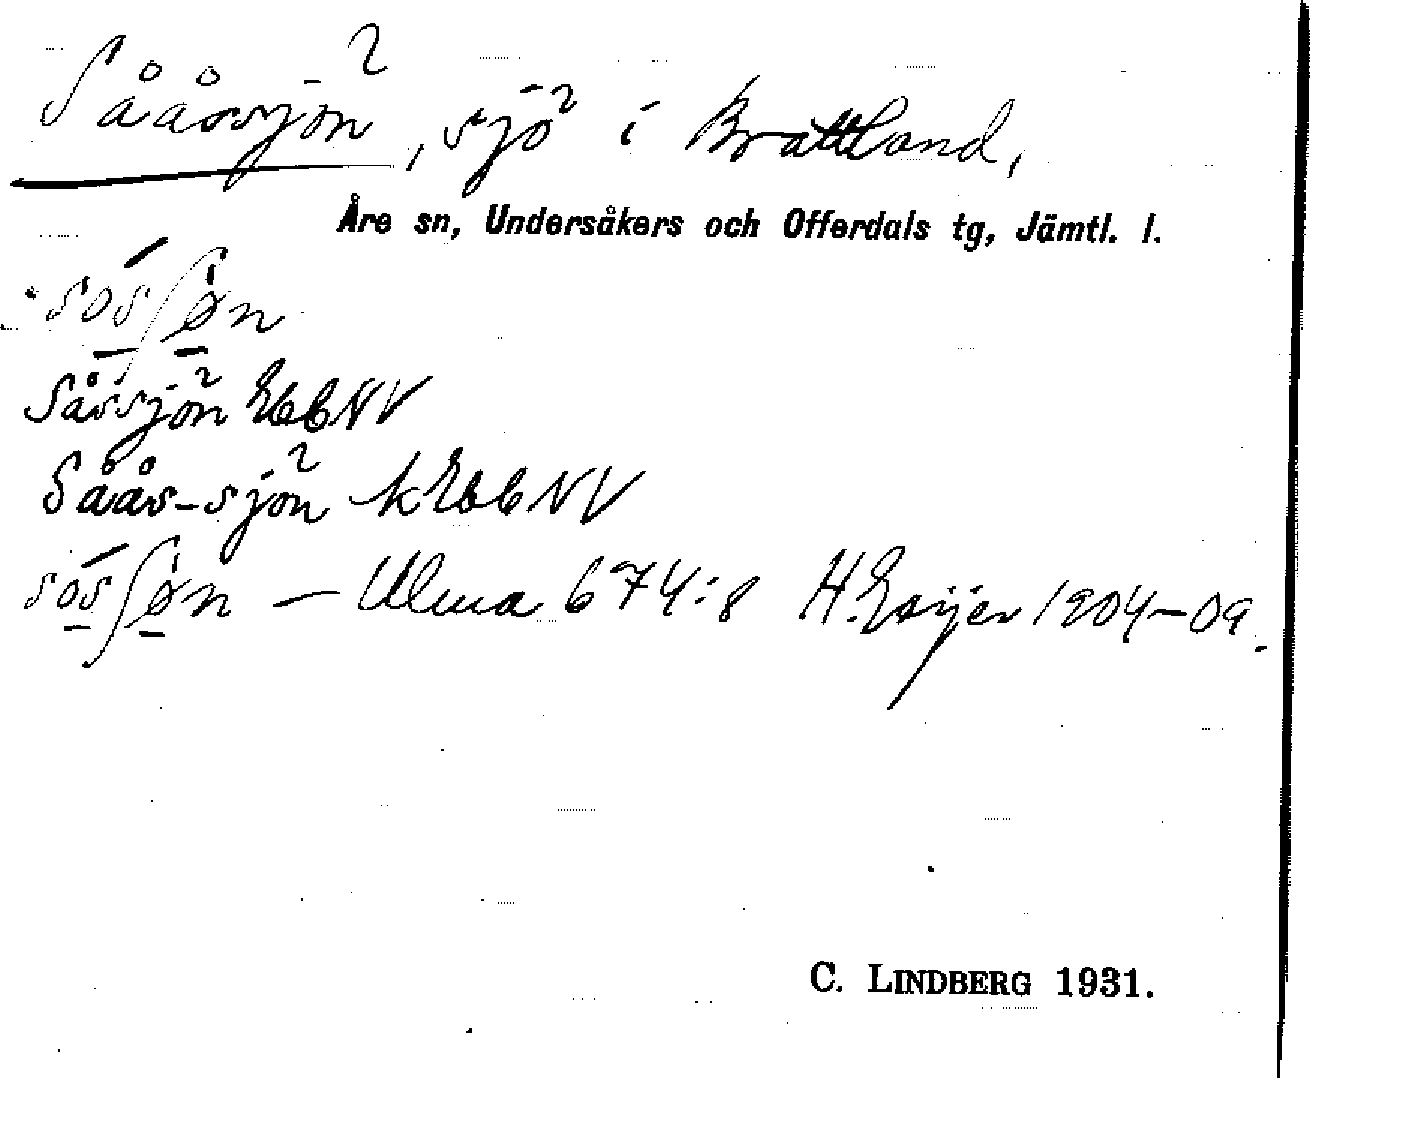 Sååssjön, sjö i Brattland,
Åre sn, Undersåkers och Offerdals tg, Jämtl. l.
Såssjön EbbNV
Såås-sjön kEbbNV
— Ulma 674:8 H. Geijer 1904-09.
C. LINDBERG 1931.